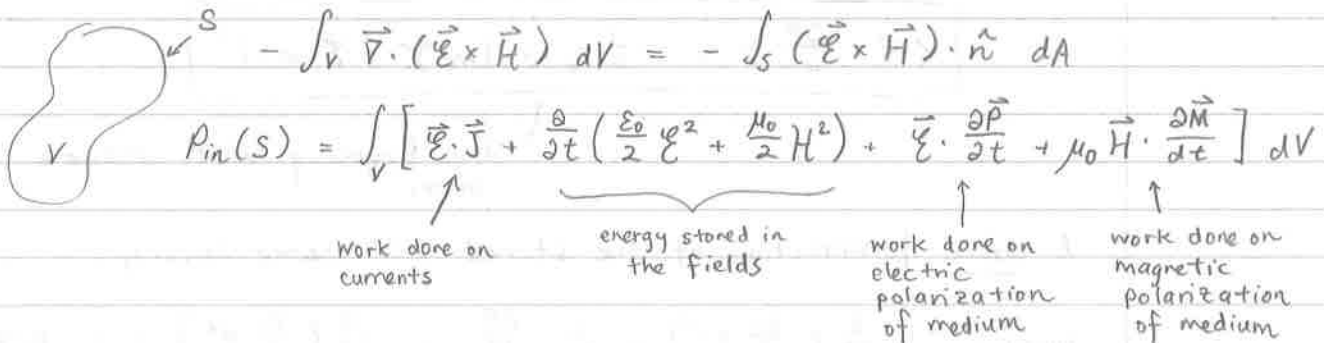 S
- ∫_V ∇⃗·(ℰ⃗ × H⃗) dV = - ∫_S (ℰ⃗ × H⃗)·n̂ dA
V
P_in(S) = ∫_V [ ℰ⃗·J⃗ + ∂/∂t (ε₀/2 ℰ² + μ₀/2 H²) + ℰ⃗·∂P⃗/∂t + μ₀ H⃗·∂M⃗/dt ] dV
work done on currents
energy stored in the fields
work done on electric polarization of medium
work done on magnetic polarization of medium